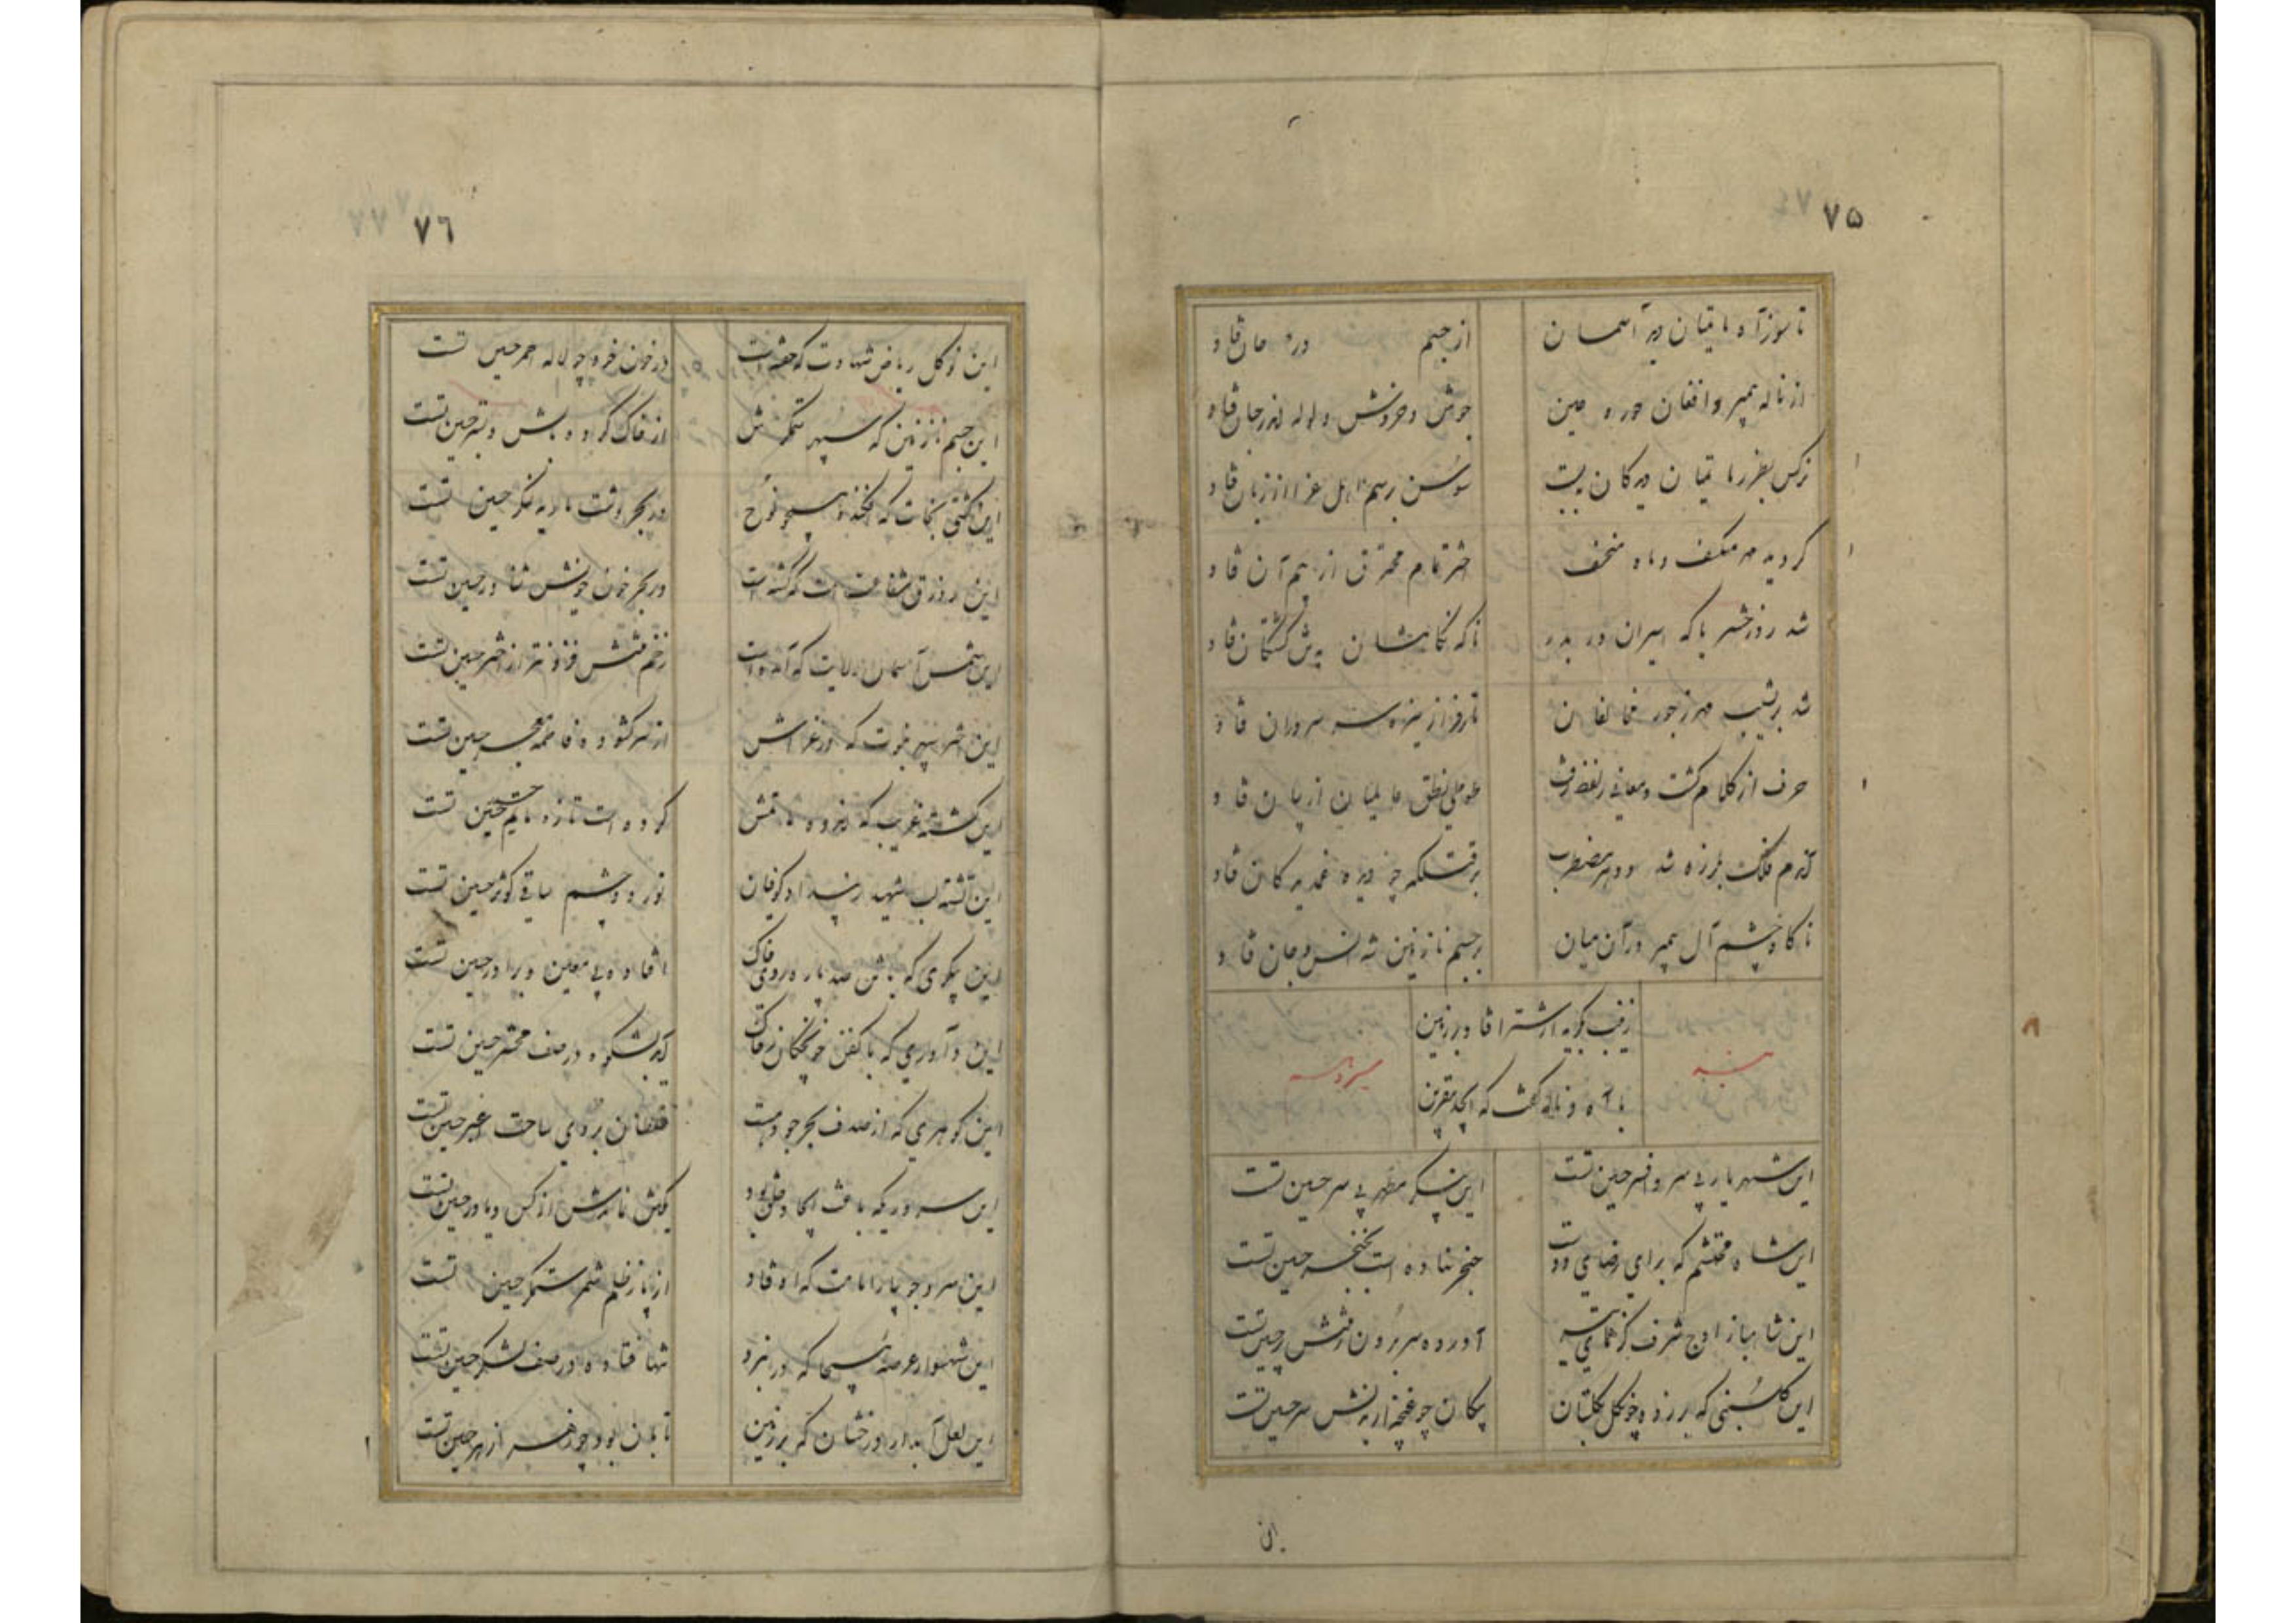 ٧۵
تا سوز آه ماتمیان در آسمان
از جسم در جان فتاد
از ناله پیمبر و افغان حور عین
جوش و خروش و لوله اندر جان فتاد
نرگس بطرز ماتمیان دیدگان ببست
سوسن برسم اهل عزا از زبان فتاد
گردید مهر منکسف و ماه منخسف
اختر تمام محترق از بیم آن فتاد
شد روز حشر تا که اسیران در بدر
ناگه نگاهشان بر کشتگان فتاد
شد بر نشیب مهر ز جور مخالفان
تا بر فراز نیزه سر سروران فتاد
حرف از کلام گشت و معانی ز لفظ
طوطی نطق عالمیان از بیان فتاد
آندم فلک بلرزه شد و دهر مضطرب
فتاد
ناگاه چشم آل پیمبر در آن میان
بر جسم نازنین شه انس و جان فتاد
زینب بگریه از شتر افتاد بر زمین
با آه و ناله گفت که ای جد
این شهریار بی سر و افسر حسین تست
این پیکر مطهر بی سر حسین تست
این شاه محتشم که برای رضای دوست
خنجر نهاده است بحنجر حسین تست
این شاهباز اوج شرف کز
آورده سر برون ز تنش پر حسین تست
این گلبنی که بر زده چون گل گلستان
پیکان چو غنچه از بدنش سر حسین تست
این
٧٦
این نوگل ریاض شهادت که خفته است
در خون خود چو لاله احمر حسین تست
این جسم نازنین که سپهر ستمگرش
از خاک کرده بالش و بستر حسین تست
این کشتی نجات که افکنده همچو نوح
در بحر بادیه لنگر حسین تست
این زورق شفاعت امت که گشته است
در بحر خون خویش شناور حسین تست
این شمس آسمان ولایت که آمده است
زخم تنش فزونتر از اختر حسین تست
این اختر سپهر نبوت که در عزاش
از سر گشوده فاطمه معجر حسین تست
این کشته غریب که اندوه ماتمش
کرده است تازه ماتم حسین تست
این تشنه لب شهید
نور دو چشم ساقی کوثر حسین تست
این پیکری که با تن صد پاره روی خاک
افتاده بی معین و برادر حسین تست
این داوری که با کفن خونچکان ز خاک
آید بشکوه در صف محشر حسین تست
این گوهری که از صدف بحر جود
غلطان بروی ساحت اغبر حسین تست
این سروری که باعث ایجاد خلق بود
کش نماندش از کس و یاور حسین تست
این سرو جویبار امامت که اوفتاد
از پا ز ظلم شمر ستمگر حسین تست
این شهسوار عرصه هیجا که در نبرد
تنها فتاده در صف لشکر حسین تست
این لعل آبدار درخشان که بر زمین
تابان بود چو حسین تست